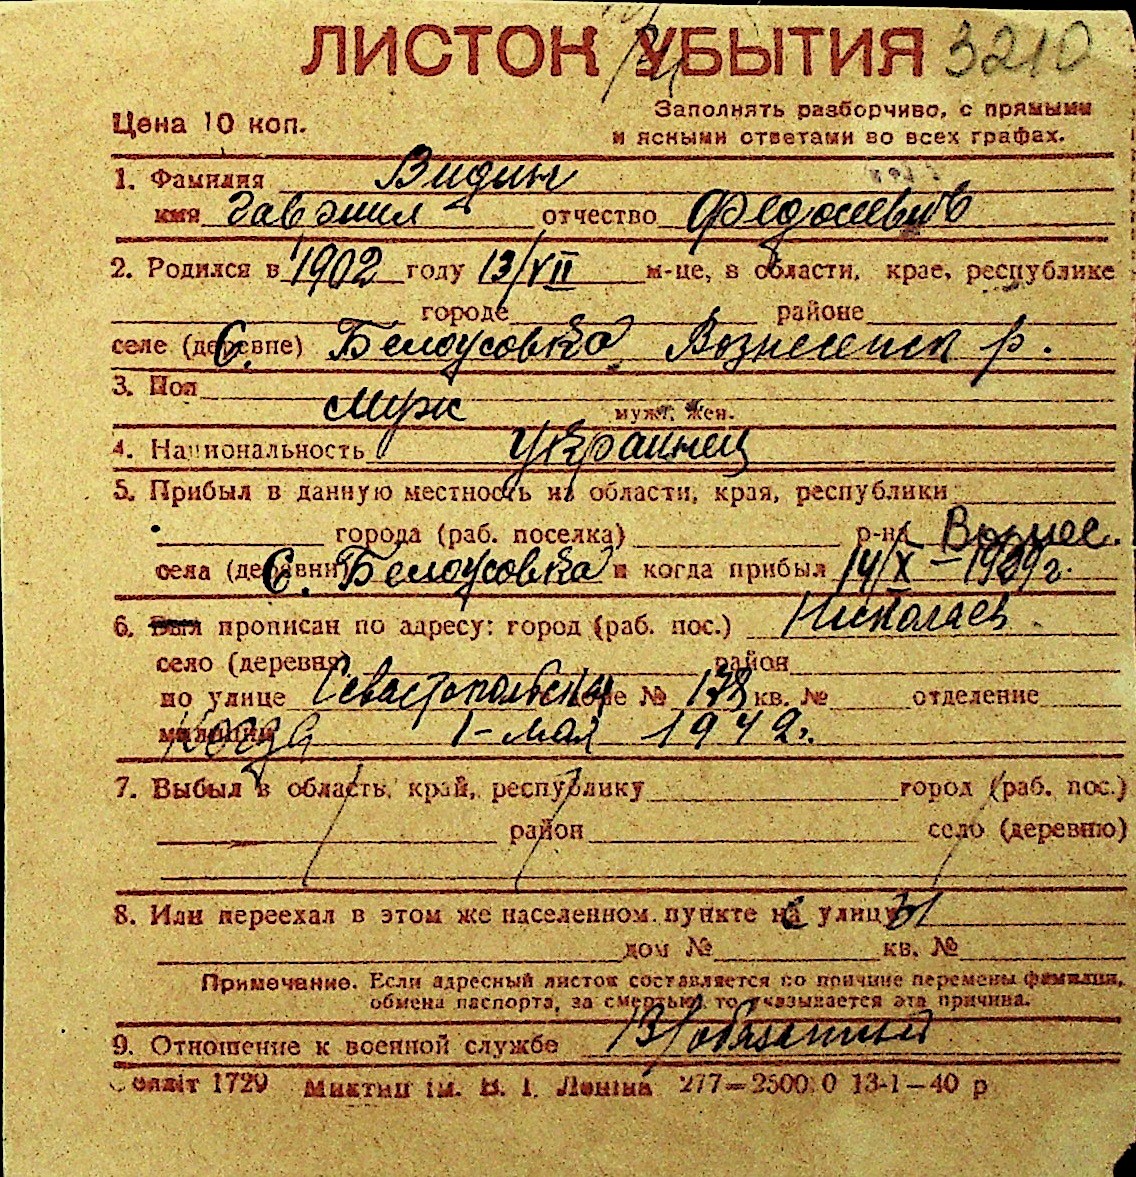 ЛИСТОК УБЫТИЯ 3210
Цена 10 коп.
Заполнять разборчиво, с прямыми
и ясными ответами во всех графах.
1. Фамилия Видин
имя отчество
2. Родился в 1902 году 13/VII м-це, в области, крае, республике
городе районе
селе (деревне) С. Белоусовка Вознесенск р.
3. Пол муж муж. жен.
4. Национальность украинец
5. Прибыл в данную местность из области, края, республики
города (раб. поселка) р-на Вознес.
села (деревни) С. Белоусовка и когда прибыл 14/X – 1939 г.
6. Был прописан по адресу: город (раб. пос.) Николаев
село (деревня) район
по улице Севастопольской доме № 178 кв. № отделение
милиции Когда 1-мая 1942 г.
7. Выбыл в область, край, республику город (раб. пос.)
район село (деревню)
8. Или переехал в этом же населенном пункте на улицу
дом № кв. №
Примечание. Если адресный листок составляется по причине перемены фамилии,
обмена паспорта, за смертью, то указывается эта причина.
9. Отношение к военной службе В/обязанный
1729 Миктип ім. В. І. Леніна 277—25000 13-1—40 р